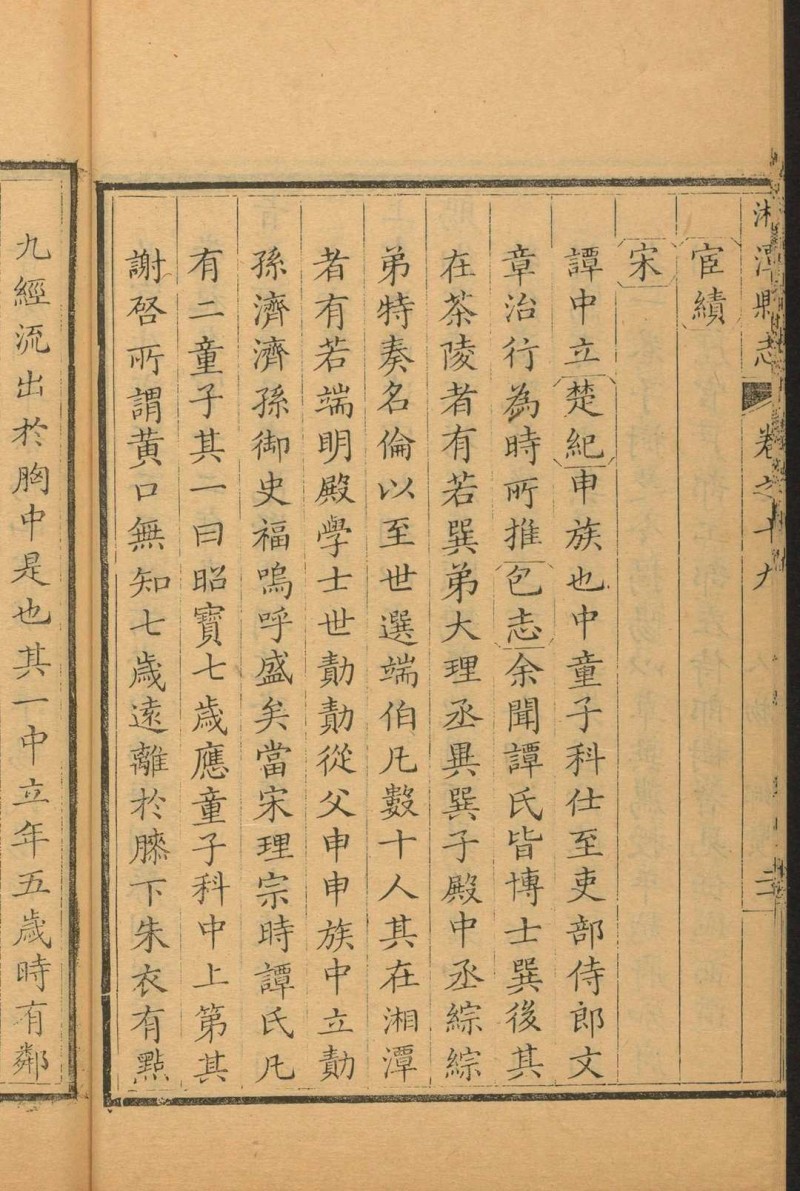 湘潭縣志 卷之十九
宦績
宋
譚中立楚紀申族也中童子科仕至吏部侍郎文
章治行為時所推包志余聞譚氏皆博士巽後其
在茶陵者有若巽弟大理丞異巽子殿中丞綜綜
弟特奏名倫以至世選端伯凡數十人其在湘潭
者有若端明殿學士世勣勣從父申申族中立勣
孫濟濟孫御史福嗚呼盛矣當宋理宗時譚氏凡
有二童子其一曰昭寶七歲應童子科中上第其
謝啓所謂黃口無知七歲遠離於膝下朱衣有點
九經流出於胸中是也其一中立年五歲時有鄰